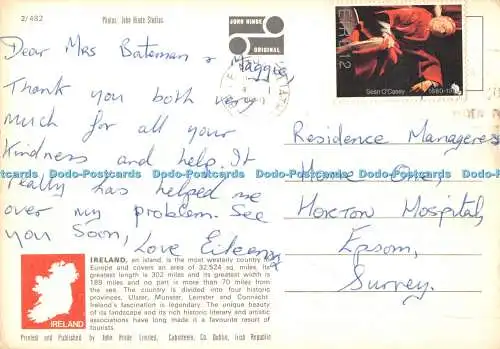 2/482
Photos: John Hinde Studios
JOHN HINDE
ORIGINAL
EIRE 12
Sean O'Casey 1880-19
Dear Mrs Bateman & Maggie,
Thank you both very
much for all your
kindness and help. It
really has helped me
over my problem. See
you soon, Love Eileen
Residence Manageress
Home One,
HORTON Hospital,
Epsom,
Surrey.
Dodo-Postcards Dodo-Postcards Dodo-Postcards Dodo-Postcards Dodo-Postcards
IRELAND, an island, is the most westerly country in
Europe and covers an area of 32,524 sq. miles. Its
greatest length is 302 miles and its greatest width is
189 miles and no part is more than 70 miles from
the sea. The country is divided into four historic
provinces, Ulster, Munster, Leinster and Connacht
Ireland's fascination is legendary. The unique beauty
of its landscape and its rich historic literary and artistic
associations have long made it a favourite resort of
tourists.
IRELAND
Printed and Published by John Hinde Limited, Cabinteely, Co. Dublin, Irish Republic